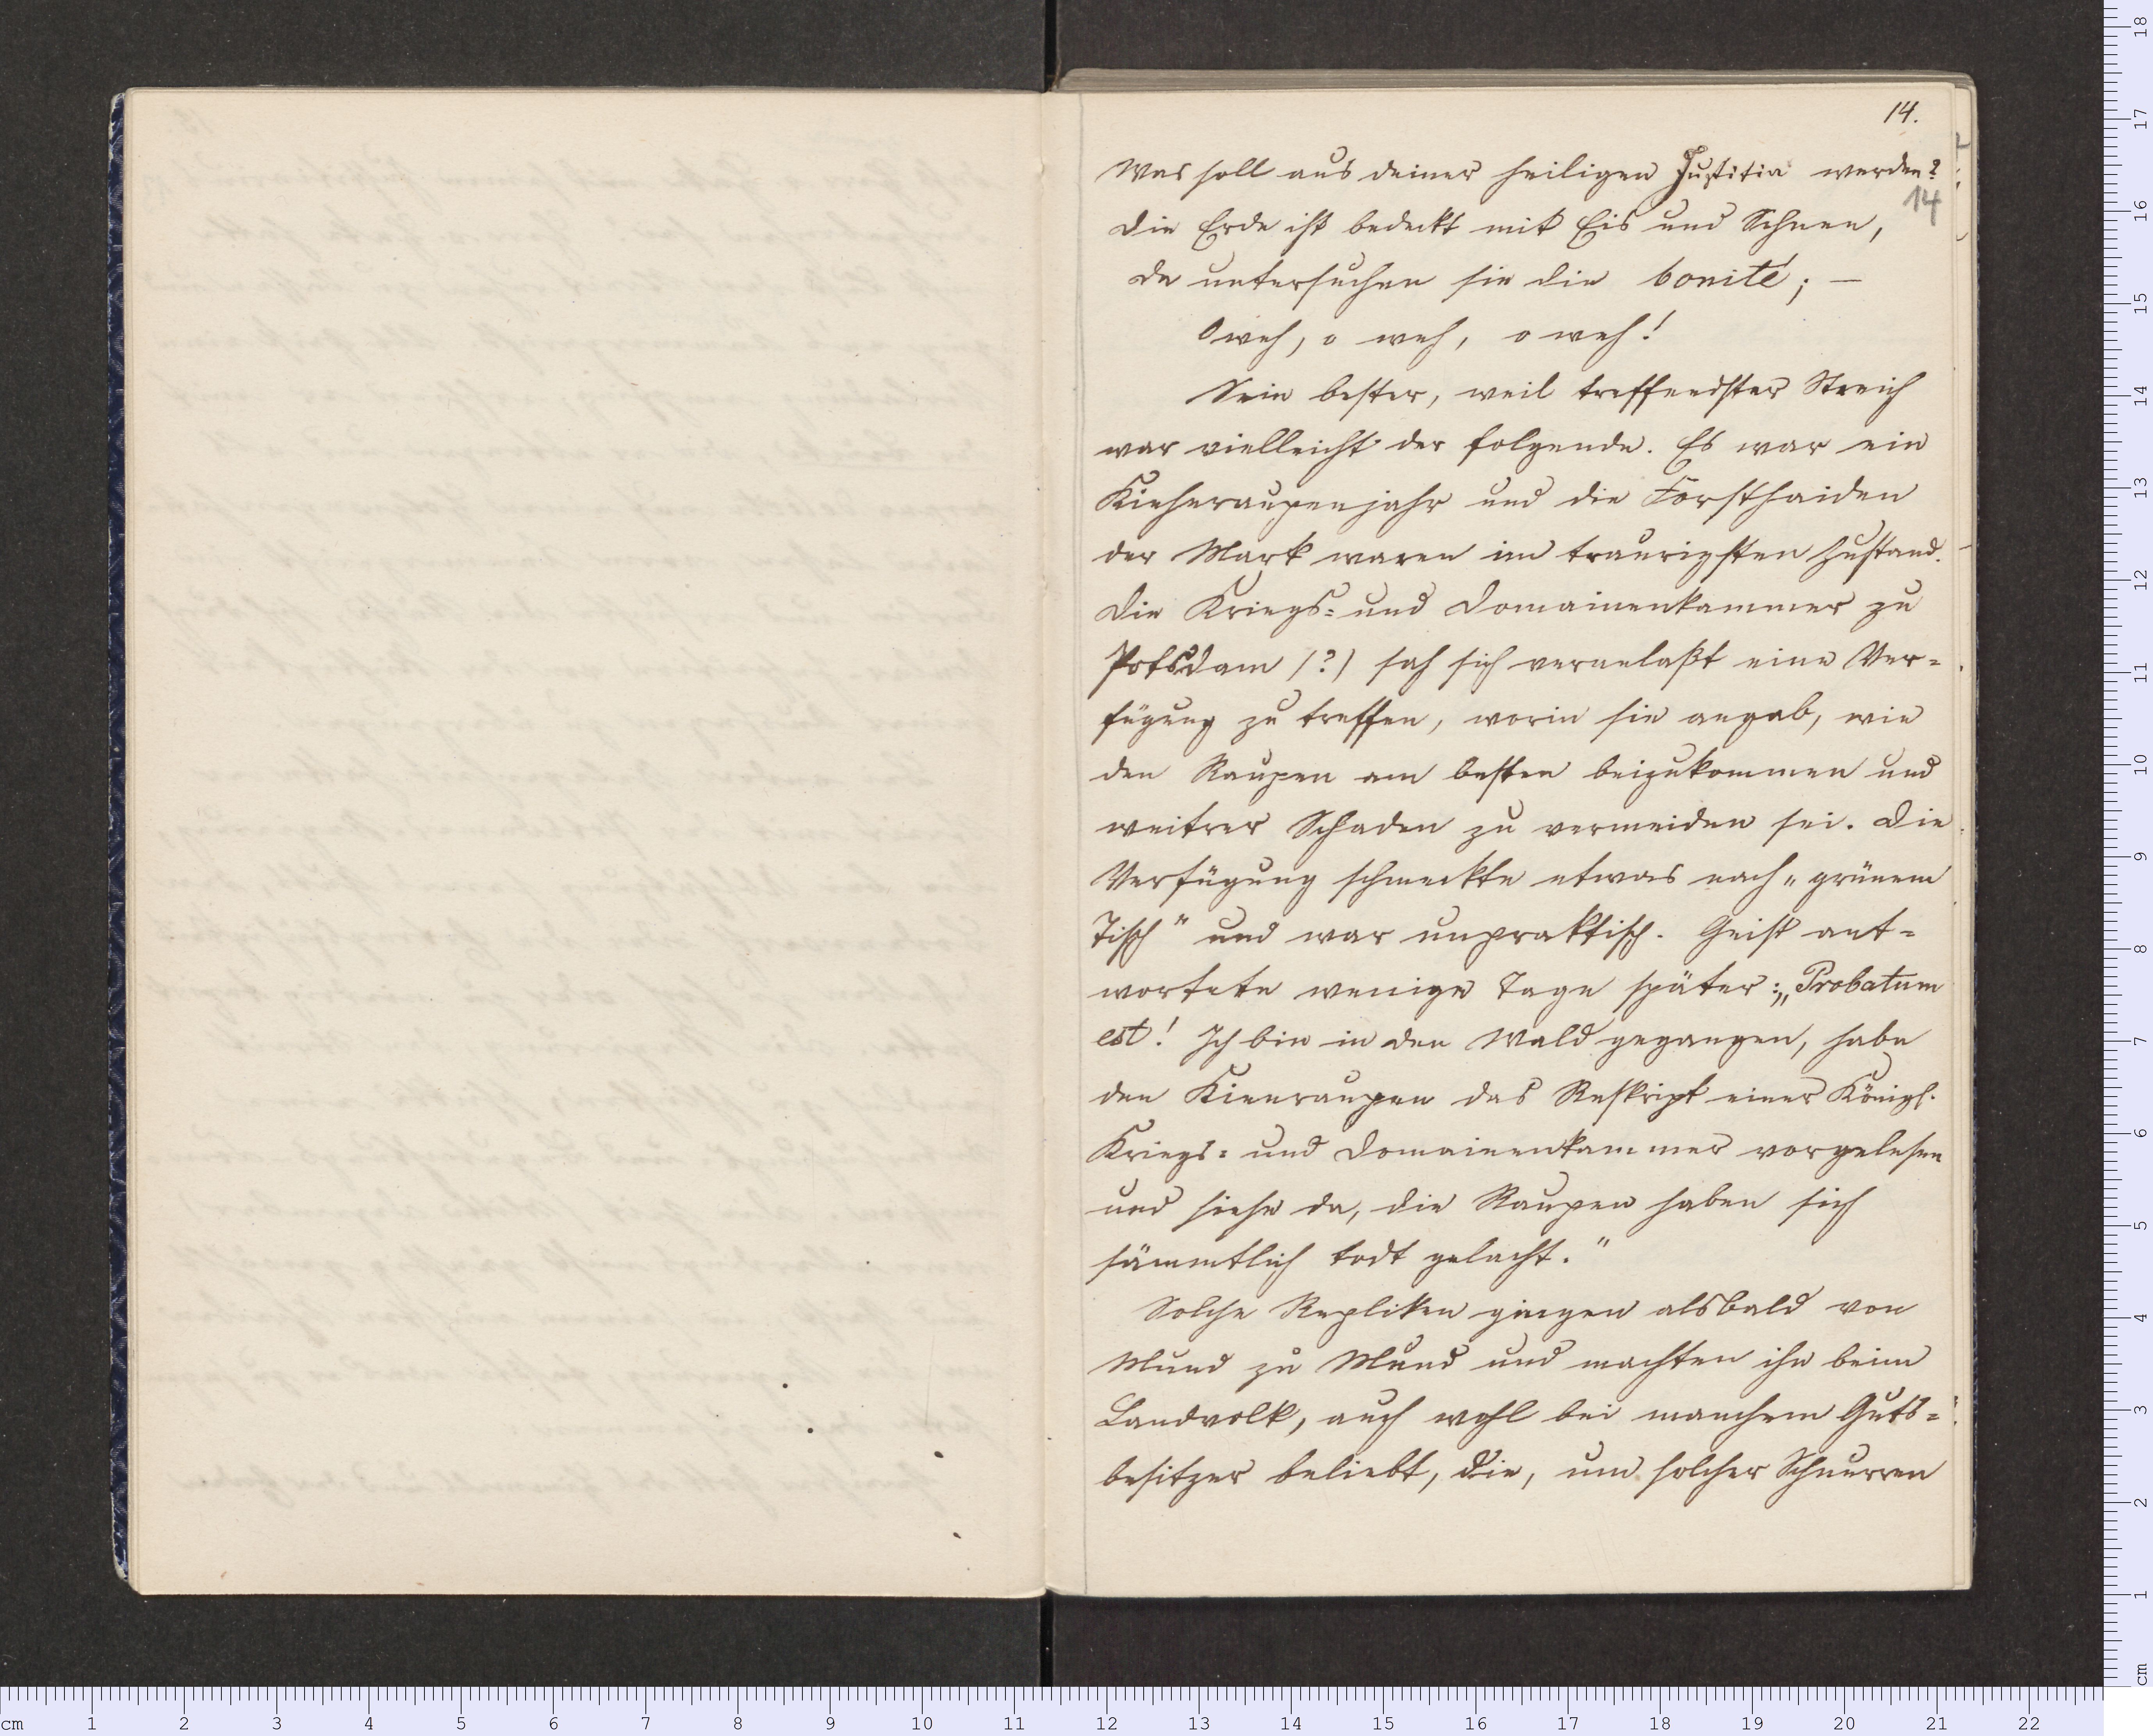 14.
Was soll aus deiner heiligen Justitia werden?
14
Die Erde ist bedeckt mit Eis und Schnee,
Da untersuchen sie die bonité; —
O weh, o weh, o weh!
Sein bester, weil treffendster Streich
war vielleicht der folgende. Es war ein
Kiehnraupenjahr und die Forsthaiden
der Mark waren im traurigsten Zustand.
Die Kriegs= und Domainenkammer zu
Potsdam (?) sah sich veranlaßt eine Ver=
fügung zu treffen, worin sie angab, wie
den Raupen am besten beizukommen und
weitrer Schaden zu vermeiden sei. Die
Verfügung schmeckte etwas nach „grünem
Tisch" und war unpraktisch. Geist ant=
wortete wenige Tage später: „Probatum
est! Ich bin in den Wald gegangen, habe
den Kienraupen das Reskript einer Königl.
Kriegs= und Domainenkammer vorgelesen
und siehe da, die Raupen haben sich
sämmtlich todt gelacht."
Solche Repliken gingen alsbald von
Mund zu Mund und machten ihn beim
Landvolk, auch wohl bei manchem Guts=
besitzer beliebt, die, um solcher Schnurren